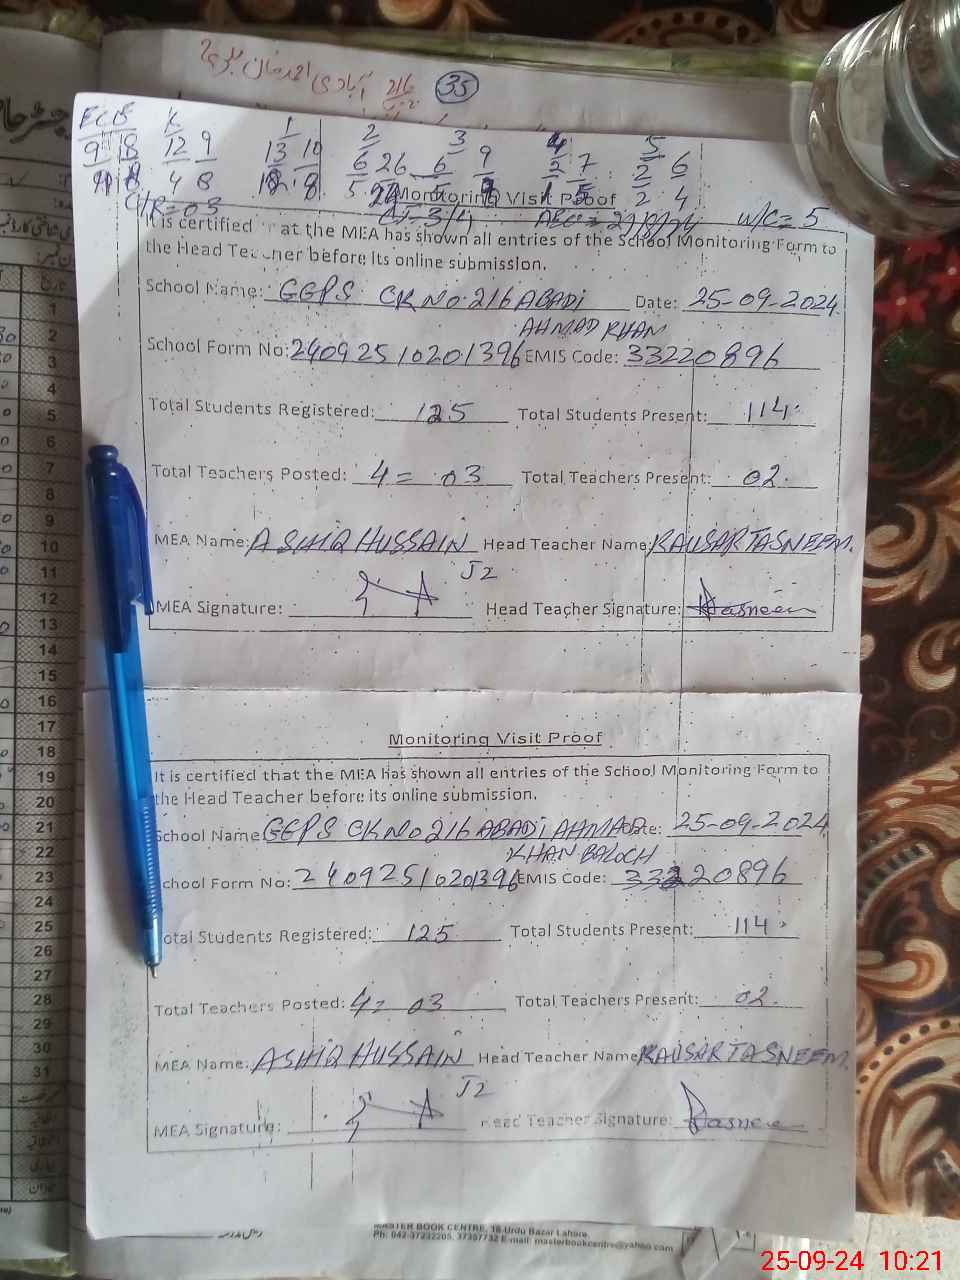 216 آبادی احمد خان
35
ECE K 1 2 3 4 5
9 18 12 9 13 10 6 26 6 9 2 7 2 6
4 8 2 4
C/R = 03 W/C = 5
Monitoring Visit Proof
It is certified that the MEA has shown all entries of the School Monitoring Form to
the Head Teacher before its online submission.
School Name: GGPS CK No. 216 ABADI Date: 25-09-2024
AHMAD KHAN
School Form No: 24092510201396 EMIS Code: 33220896
Total Students Registered: 125 Total Students Present: 114
Total Teachers Posted: 4 = 03 Total Teachers Present: 02
MEA Name: ASHIQ HUSSAIN Head Teacher Name: KAUSAR TASNEEM.
J2
MEA Signature: Head Teacher Signature: Tasneem
Monitoring Visit Proof
It is certified that the MEA has shown all entries of the School Monitoring Form to
the Head Teacher before its online submission.
School Name: GGPS CK No 216 ABADI AHMAD Date: 25-09-2024
KHAN BALOCH
School Form No: 24092510201396 EMIS Code: 33220896
Total Students Registered: 125 Total Students Present: 114
Total Teachers Posted: 4 = 03 Total Teachers Present: 02
MEA Name: ASHIQ HUSSAIN Head Teacher Name: KAUSAR TASNEEM.
J2
MEA Signature: Head Teacher Signature: Tasneem
MASTER BOOK CENTRE, 18-Urdu Bazar Lahore
Ph: 042-37232205, 37357732 E-mail: masterbookcentre@yahoo.com
1
2
3
4
5
6
7
8
9
10
11
12
13
14
15
16
17
18
19
20
21
22
23
24
25
26
27
28
29
30
31
25-09-24 10:21